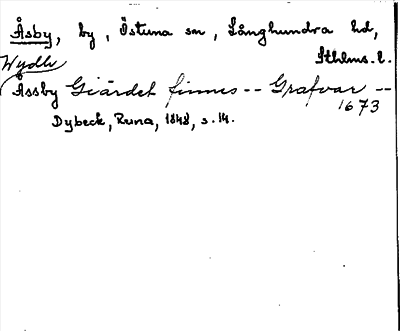 Åsby, by, Östuna sn, Långhundra hd,
Sthlms. l.
Wydby
Åssby Giärdet finnes -- Grafvar --
1673
Dybeck, Runa, 1848, s. 14.